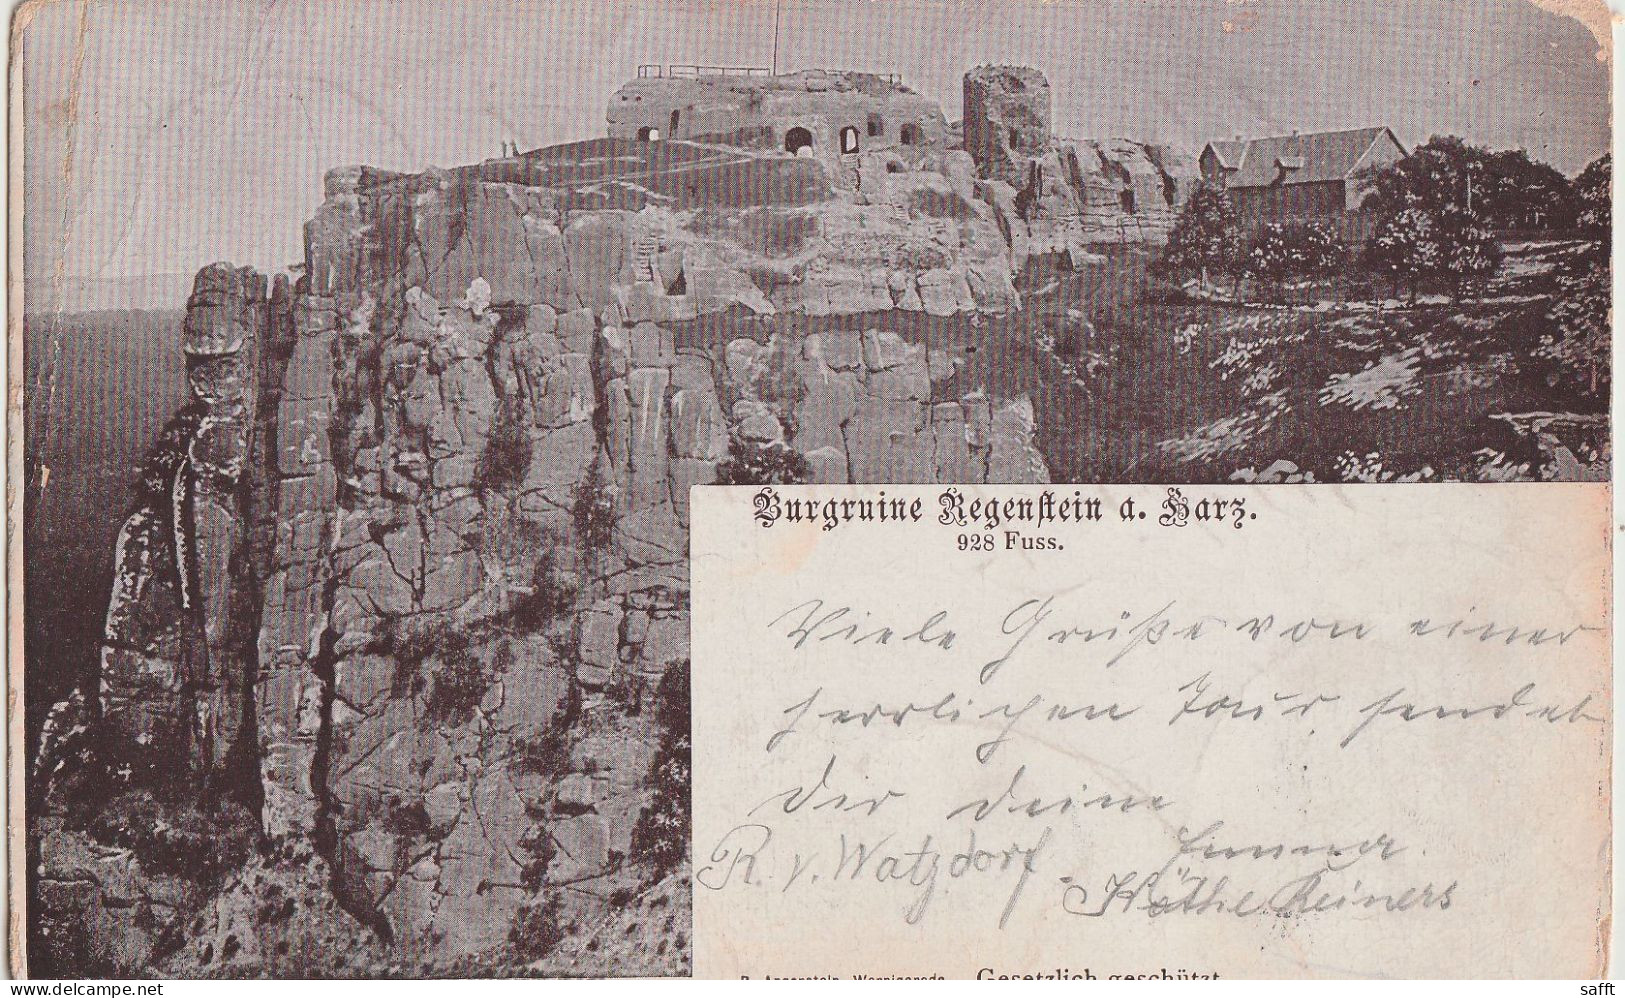 Burgruine Regenstein a. Harz.
928 Fuss.
Viele Grüße von einer
herrlichen Tour sendet
Dir deine
Emma
R. v. Watzdorf.
Käthe Reiners
Gesetzlich geschützt
www.delcampe.net
safft